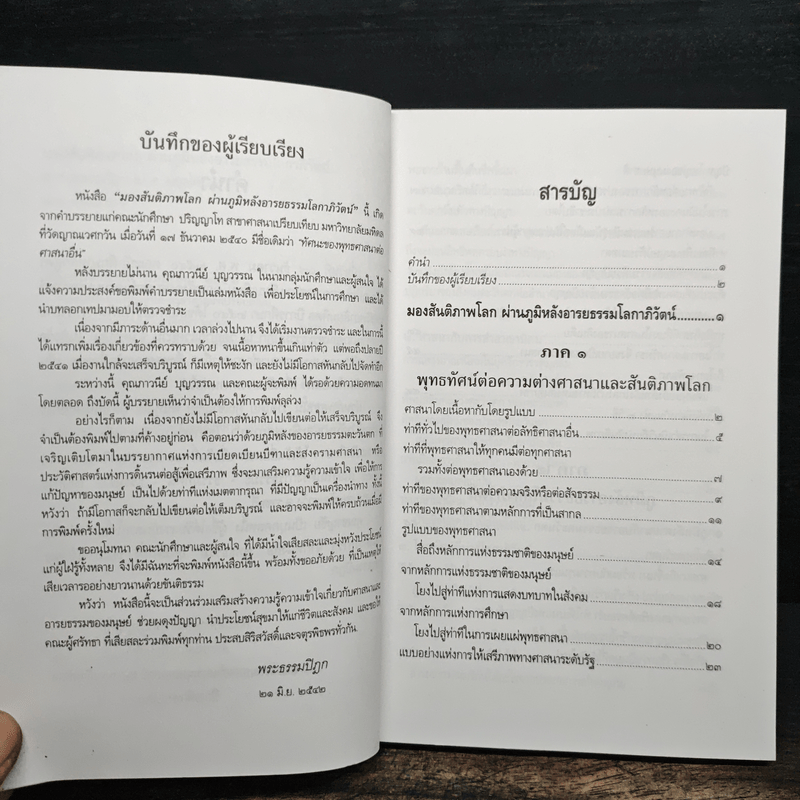 บันทึกของผู้เรียบเรียง
หนังสือ “มองสันติภาพโลก ผ่านภูมิหลังอารยธรรมโลกาภิวัตน์” นี้ เกิด
จากคำบรรยายแก่คณะนักศึกษา ปริญญาโท สาขาศาสนาเปรียบเทียบ มหาวิทยาลัยมหิดล
ที่วัดญาณเวศกวัน เมื่อวันที่ ๑๗ ธันวาคม ๒๕๔๐ มีชื่อเดิมว่า “ทัศนะของพุทธศาสนาต่อ
ศาสนาอื่น”
หลังบรรยายไม่นาน คุณภาวนีย์ บุญวรรณ ในนามกลุ่มนักศึกษาและผู้สนใจ ได้
แจ้งความประสงค์ขอพิมพ์คำบรรยายเป็นเล่มหนังสือ เพื่อประโยชน์ในการศึกษา และได้
นำบทลอกเทปมามอบให้ตรวจชำระ
เนื่องจากมีภาระด้านอื่นมาก เวลาล่วงไปนาน จึงได้เริ่มงานตรวจชำระ และในการนี้
ได้แทรกเพิ่มเรื่องเกี่ยวข้องที่ควรทราบด้วย จนเนื้อหาหนาขึ้นเกินเท่าตัว แต่พอถึงปลายปี
๒๕๔๑ เมื่องานใกล้จะเสร็จบริบูรณ์ ก็มีเหตุให้ชะงัก และยังไม่มีโอกาสหันกลับไปจัดทำอีก
ระหว่างนี้ คุณภาวนีย์ บุญวรรณ และคณะผู้จะพิมพ์ ได้รอด้วยความอดทน
โดยตลอด ถึงบัดนี้ ผู้บรรยายเห็นว่าจำเป็นต้องให้การพิมพ์ลุล่วง
อย่างไรก็ตาม เนื่องจากยังไม่มีโอกาสหันกลับไปเขียนต่อให้เสร็จบริบูรณ์ จึง
จำเป็นต้องพิมพ์ไปตามที่ค้างอยู่ก่อน คือตอนว่าด้วยภูมิหลังของอารยธรรมตะวันตก ที่
เจริญเติบโตมาในบรรยากาศแห่งการเบียดเบียนบีฑาและสงครามศาสนา หรือ
ประวัติศาสตร์แห่งการดิ้นรนต่อสู้เพื่อเสรีภาพ ซึ่งจะมาเสริมความรู้ความเข้าใจ เพื่อให้การ
แก้ปัญหาของมนุษย์ เป็นไปด้วยท่าทีแห่งเมตตากรุณา ที่มีปัญญาเป็นเครื่องนำทาง ทั้งนี้
หวังว่า ถ้ามีโอกาสก็จะกลับไปเขียนต่อให้เต็มบริบูรณ์ และอาจจะพิมพ์ให้ครบถ้วนเมื่อมี
การพิมพ์ครั้งใหม่
ขออนุโมทนา คณะนักศึกษาและผู้สนใจ ที่ได้มีน้ำใจเสียสละและมุ่งหวังประโยชน์
แก่ผู้ใฝ่รู้ทั้งหลาย จึงได้มีฉันทะที่จะพิมพ์หนังสือนี้ขึ้น พร้อมทั้งขออภัยด้วย ที่เป็นเหตุให้
เสียเวลารออย่างยาวนานด้วยขันติธรรม
หวังว่า หนังสือนี้จะเป็นส่วนร่วมเสริมสร้างความรู้ความเข้าใจเกี่ยวกับศาสนาและ
อารยธรรมของมนุษย์ ช่วยผดุงปัญญา นำประโยชน์สุขมาให้แก่ชีวิตและสังคม และขอให้
คณะผู้ศรัทธา ที่เสียสละร่วมพิมพ์ทุกท่าน ประสบสิริสวัสดิ์และจตุรพิธพรทั่วกัน.
พระธรรมปิฎก
๒๑ มิ.ย. ๒๕๔๒
สารบัญ
คำนำ ๑
บันทึกของผู้เรียบเรียง ๒
มองสันติภาพโลก ผ่านภูมิหลังอารยธรรมโลกาภิวัตน์ ๑
ภาค ๑
พุทธทัศน์ต่อความต่างศาสนาและสันติภาพโลก
ศาสนาโดยเนื้อหากับโดยรูปแบบ ๒
ท่าทีทั่วไปของพุทธศาสนาต่อลัทธิศาสนาอื่น ๕
ท่าทีที่พุทธศาสนาให้ทุกคนมีต่อทุกศาสนา
รวมทั้งต่อพุทธศาสนาเองด้วย ๗
ท่าทีของพุทธศาสนาต่อความจริงหรือต่อสัจธรรม ๙
ท่าทีของพุทธศาสนาตามหลักการที่เป็นสากล ๑๑
รูปแบบของพุทธศาสนา
สื่อถึงหลักการแห่งธรรมชาติของมนุษย์ ๑๔
จากหลักการแห่งธรรมชาติของมนุษย์
โยงไปสู่ท่าทีแห่งการแสดงบทบาทในสังคม ๑๘
จากหลักการแห่งการศึกษา
โยงไปสู่ท่าทีในการเผยแผ่พุทธศาสนา ๒๐
แบบอย่างแห่งการให้เสรีภาพทางศาสนาระดับรัฐ ๒๓